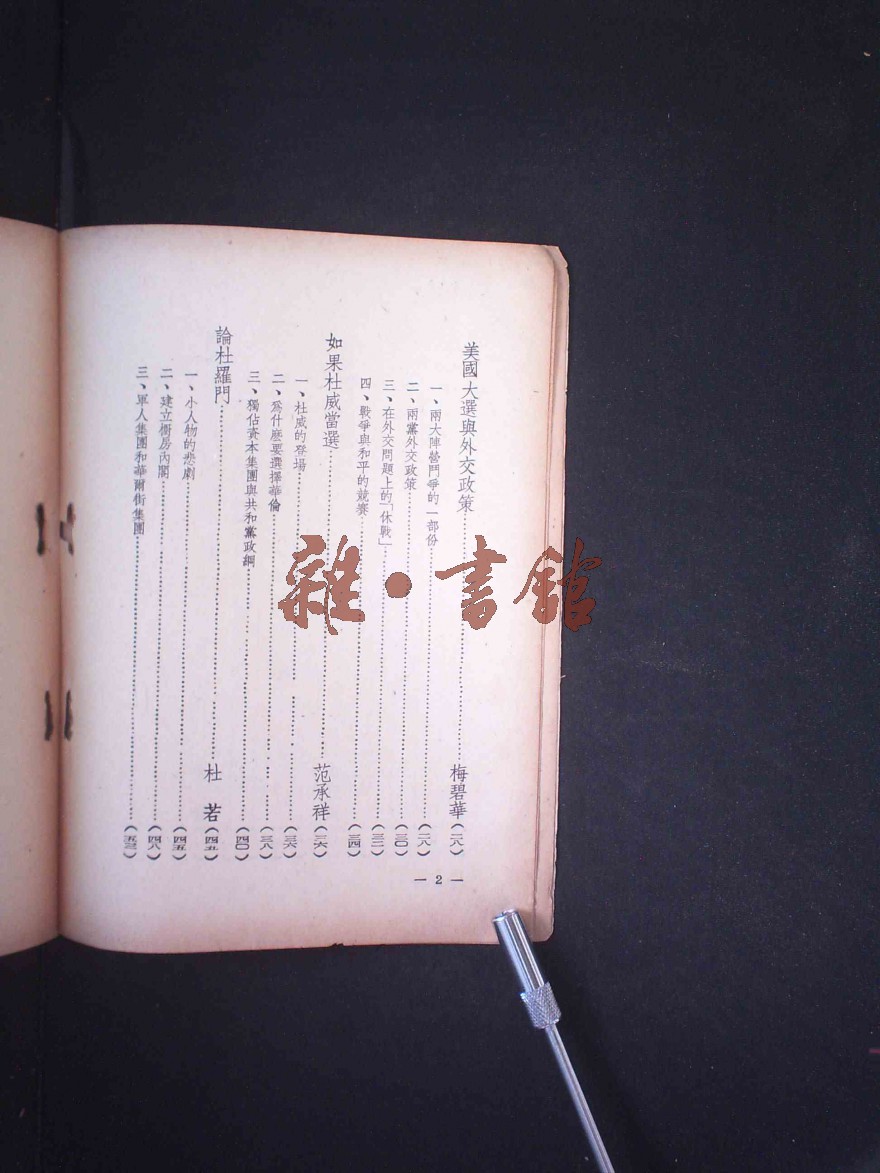 美國大選與外交政策……梅碧華(二八)
一、兩大陣營鬥爭的一部份……(二八)
二、兩黨外交政策……(三〇)
三、在外交問題上的「休戰」……(三二)
四、戰爭與和平的競賽……(三四)
如果杜威當選……范承祥(三六)
一、杜威的登場……(三六)
二、爲什麽要選擇華倫……(三八)
三、獨佔資本集團與共和黨政綱……(四〇)
論杜羅門……杜 若
一、小人物的悲劇……(四五)
二、建立厨房內閣……(四八)
三、軍人集團和華爾街集團……
— 2 —
雜·書館